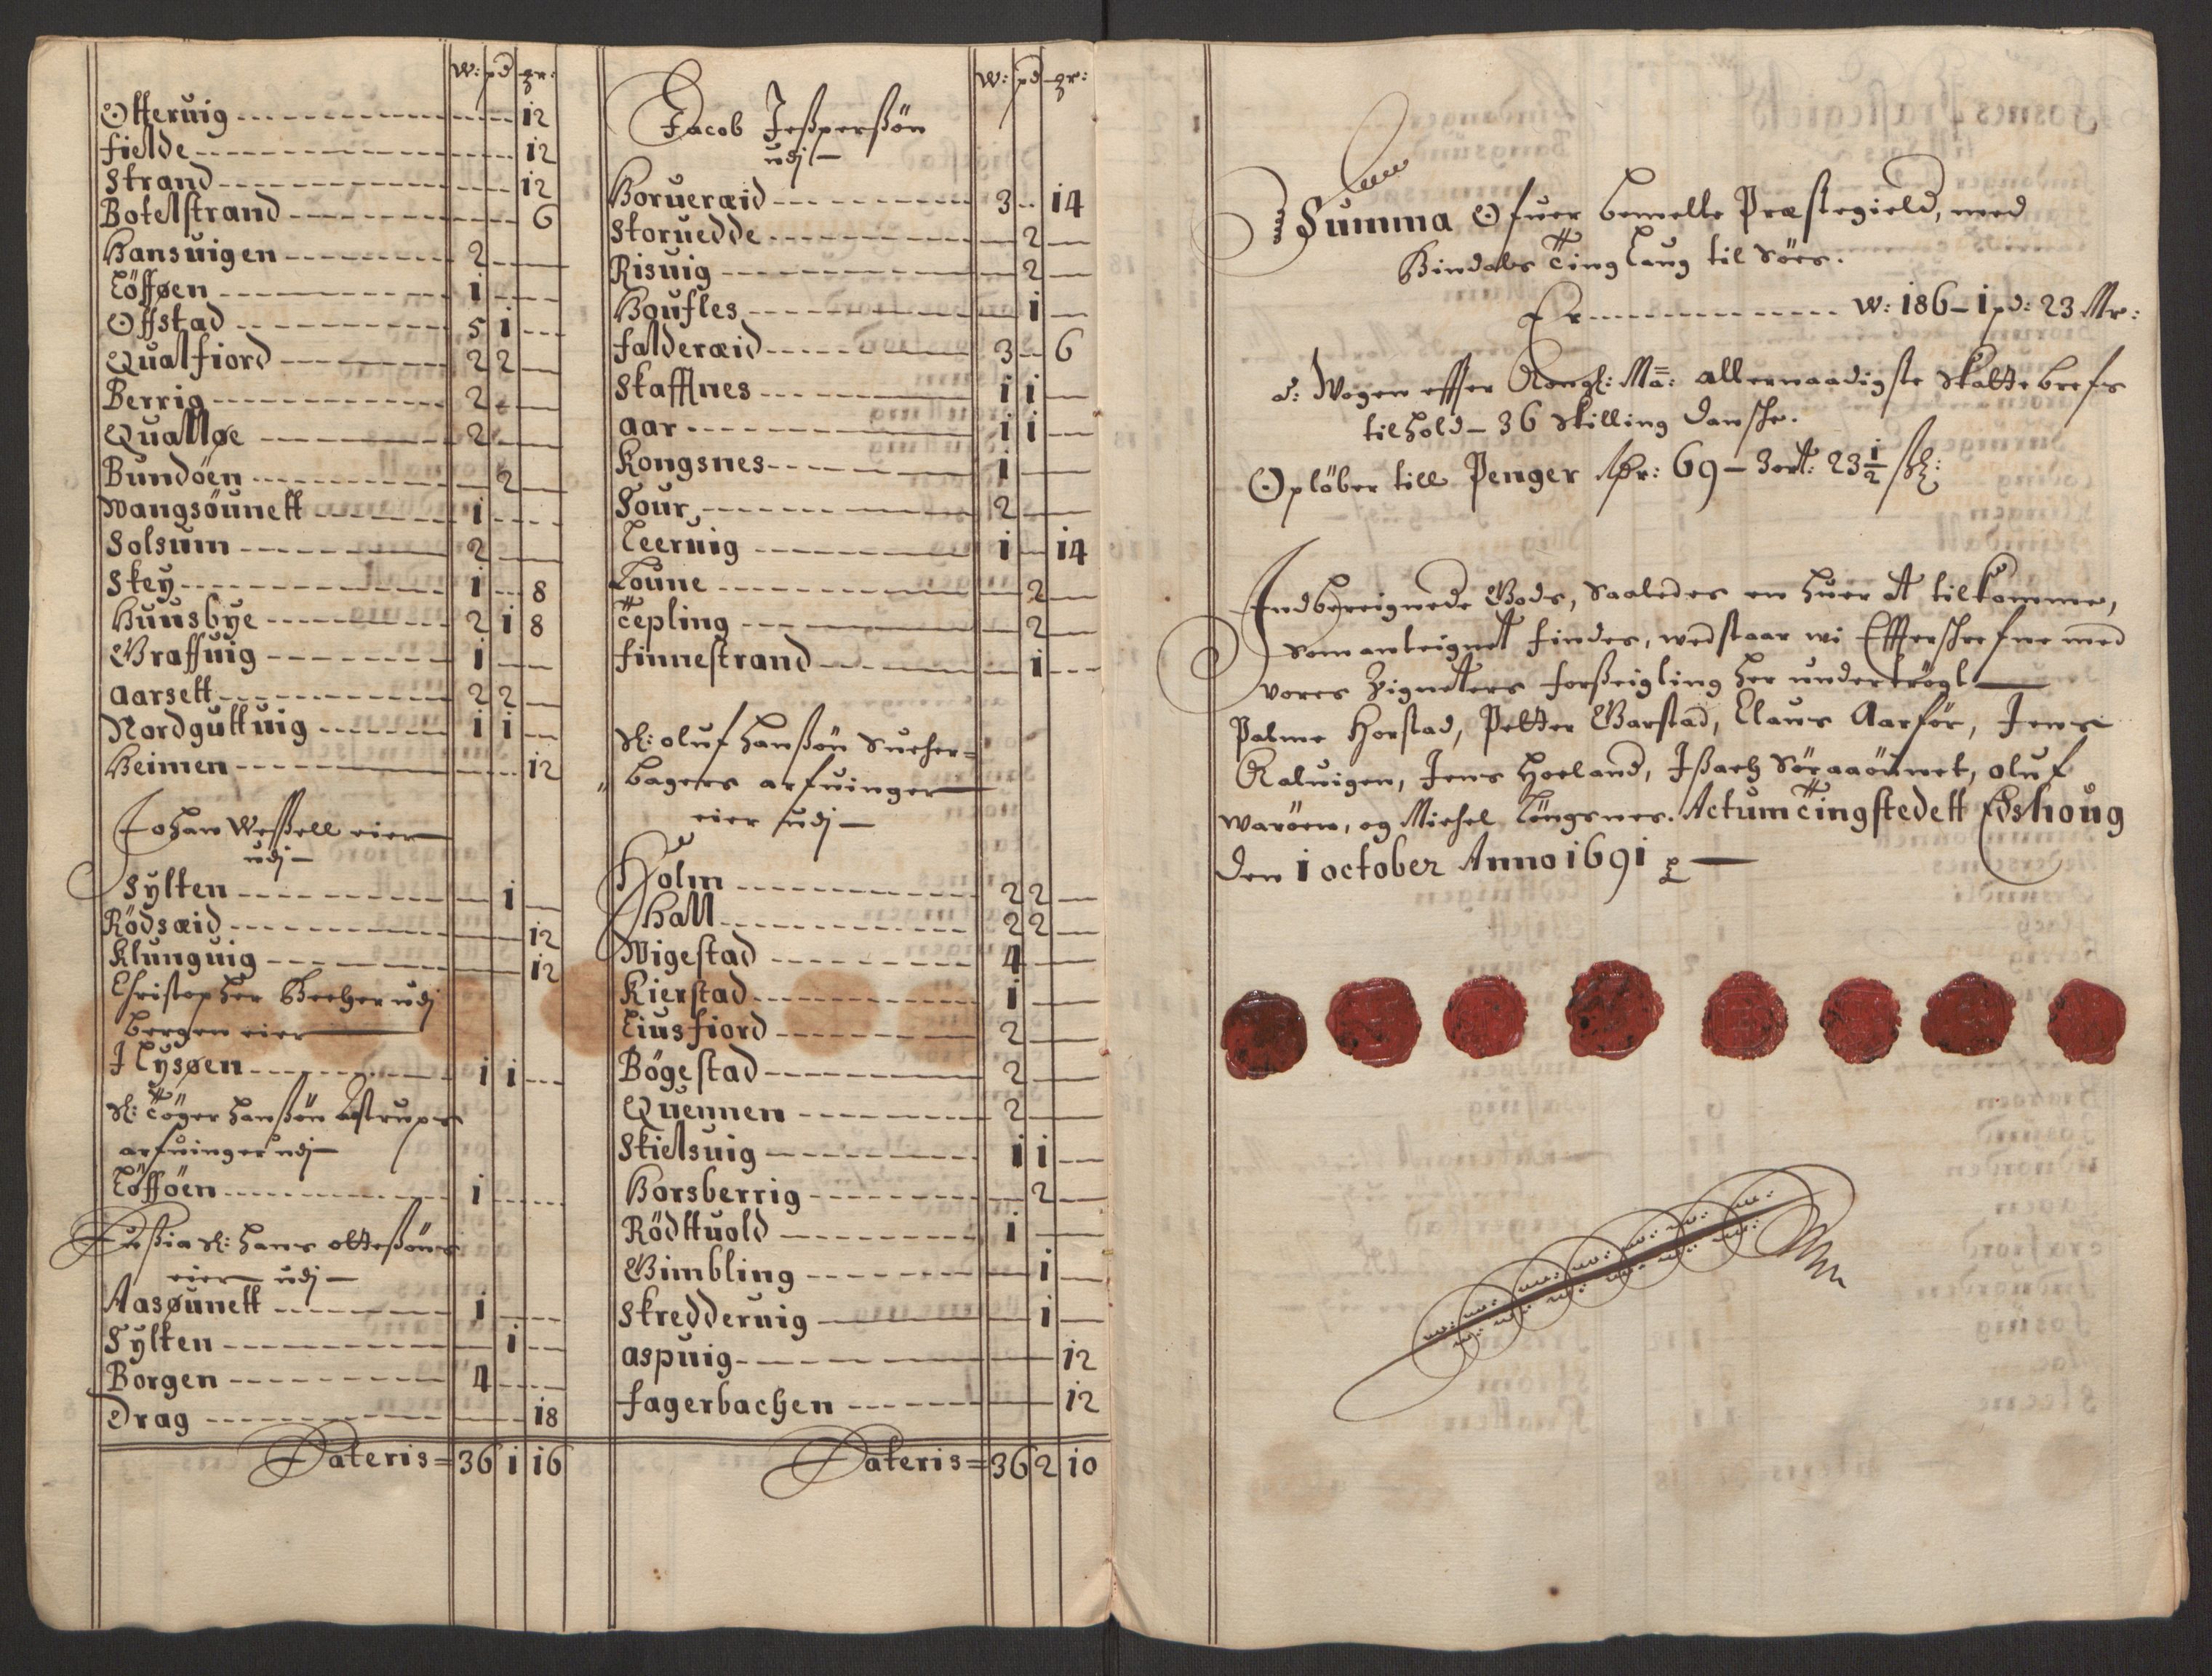 w: pd mr:
Otteruig 12
fielde 12
Strand 12
Botelstrand 6
Hansuigen 2
Löfføen 1
Offstad 5 1
Qualfiord 2 2
Berrig 2
Qualløe 2
Bundöen 2
Wangsöunett 1
Solsum 2
Skey 1 8
Huusbye 2 1 8
Graffuig 1
Aarsett 2 2
Nordguttuig 1 1
Heimen 12
Johan Weßell eier
udj
Sylten 1
Rödsæid 12
Klunguig 12
Christopher Becher udj
bergen eier
J Lysøen 1 1
Sl: Töger hanßön Astrups
arfuinger udj
Löfföen 1
Sl: hans otteßöns
eier udj
Aasøunett 1
Sylten 1
Borgen 4
Drag 18
Lateris= 36 1 16
w: pd mr:
Jacob Jeßperßön
udj
Horueræid 3 14
Storuedde 2
Risuig 2
Houfles 1
falderæid 3 6
Skaffnes 1 1
Aar 1 1
Kongsnes 1
Sour 2
Leeruig 1 14
Loune 2
Tepling 2
finnestrand 1
Sl: oluf hanßön Sucher=
bagers arfuinger
eier udj
Holm 2 2
Hall 2 2
Wigestad 4
Kierstad 1
Liusfiord 2
Bögestad 2
Quennen 2
Skielsuig 1 1
Horsberrig 2
Rödttuold 1
Gimbling 1
Skredderuig 1
aspuig 12
fagerbachen 12
Lateris= 36 2 10
Summa Ofuer bemelte Præstegield, med
Bindals Tinglaug til Söes.
Er w: 186 – 1 pd: 23 Mr:
a: Wogen effter Kongl: Ma: allernaadigste Skattebrefs
tilhold – 36 Skilling Danshe.
Oplöber till Penger Rdr: 69 – 3 ort: 23½ sh:
Indbereignede Gods, Saaledes en huer Att tilkomme,
som anteignet findes, wedstaar wi Effterschrefne med
vores Zignetters forßeigling her undertrögt
Palme Horstad, Petter Garstad, Claus Aarför, Jens
Kaluigen, Jens Hoeland, Jßach Söraaöunet, oluf
waröen, og Michel Löngsnes. Actum Tingstedett Edshoug
den 1 october Anno 1691